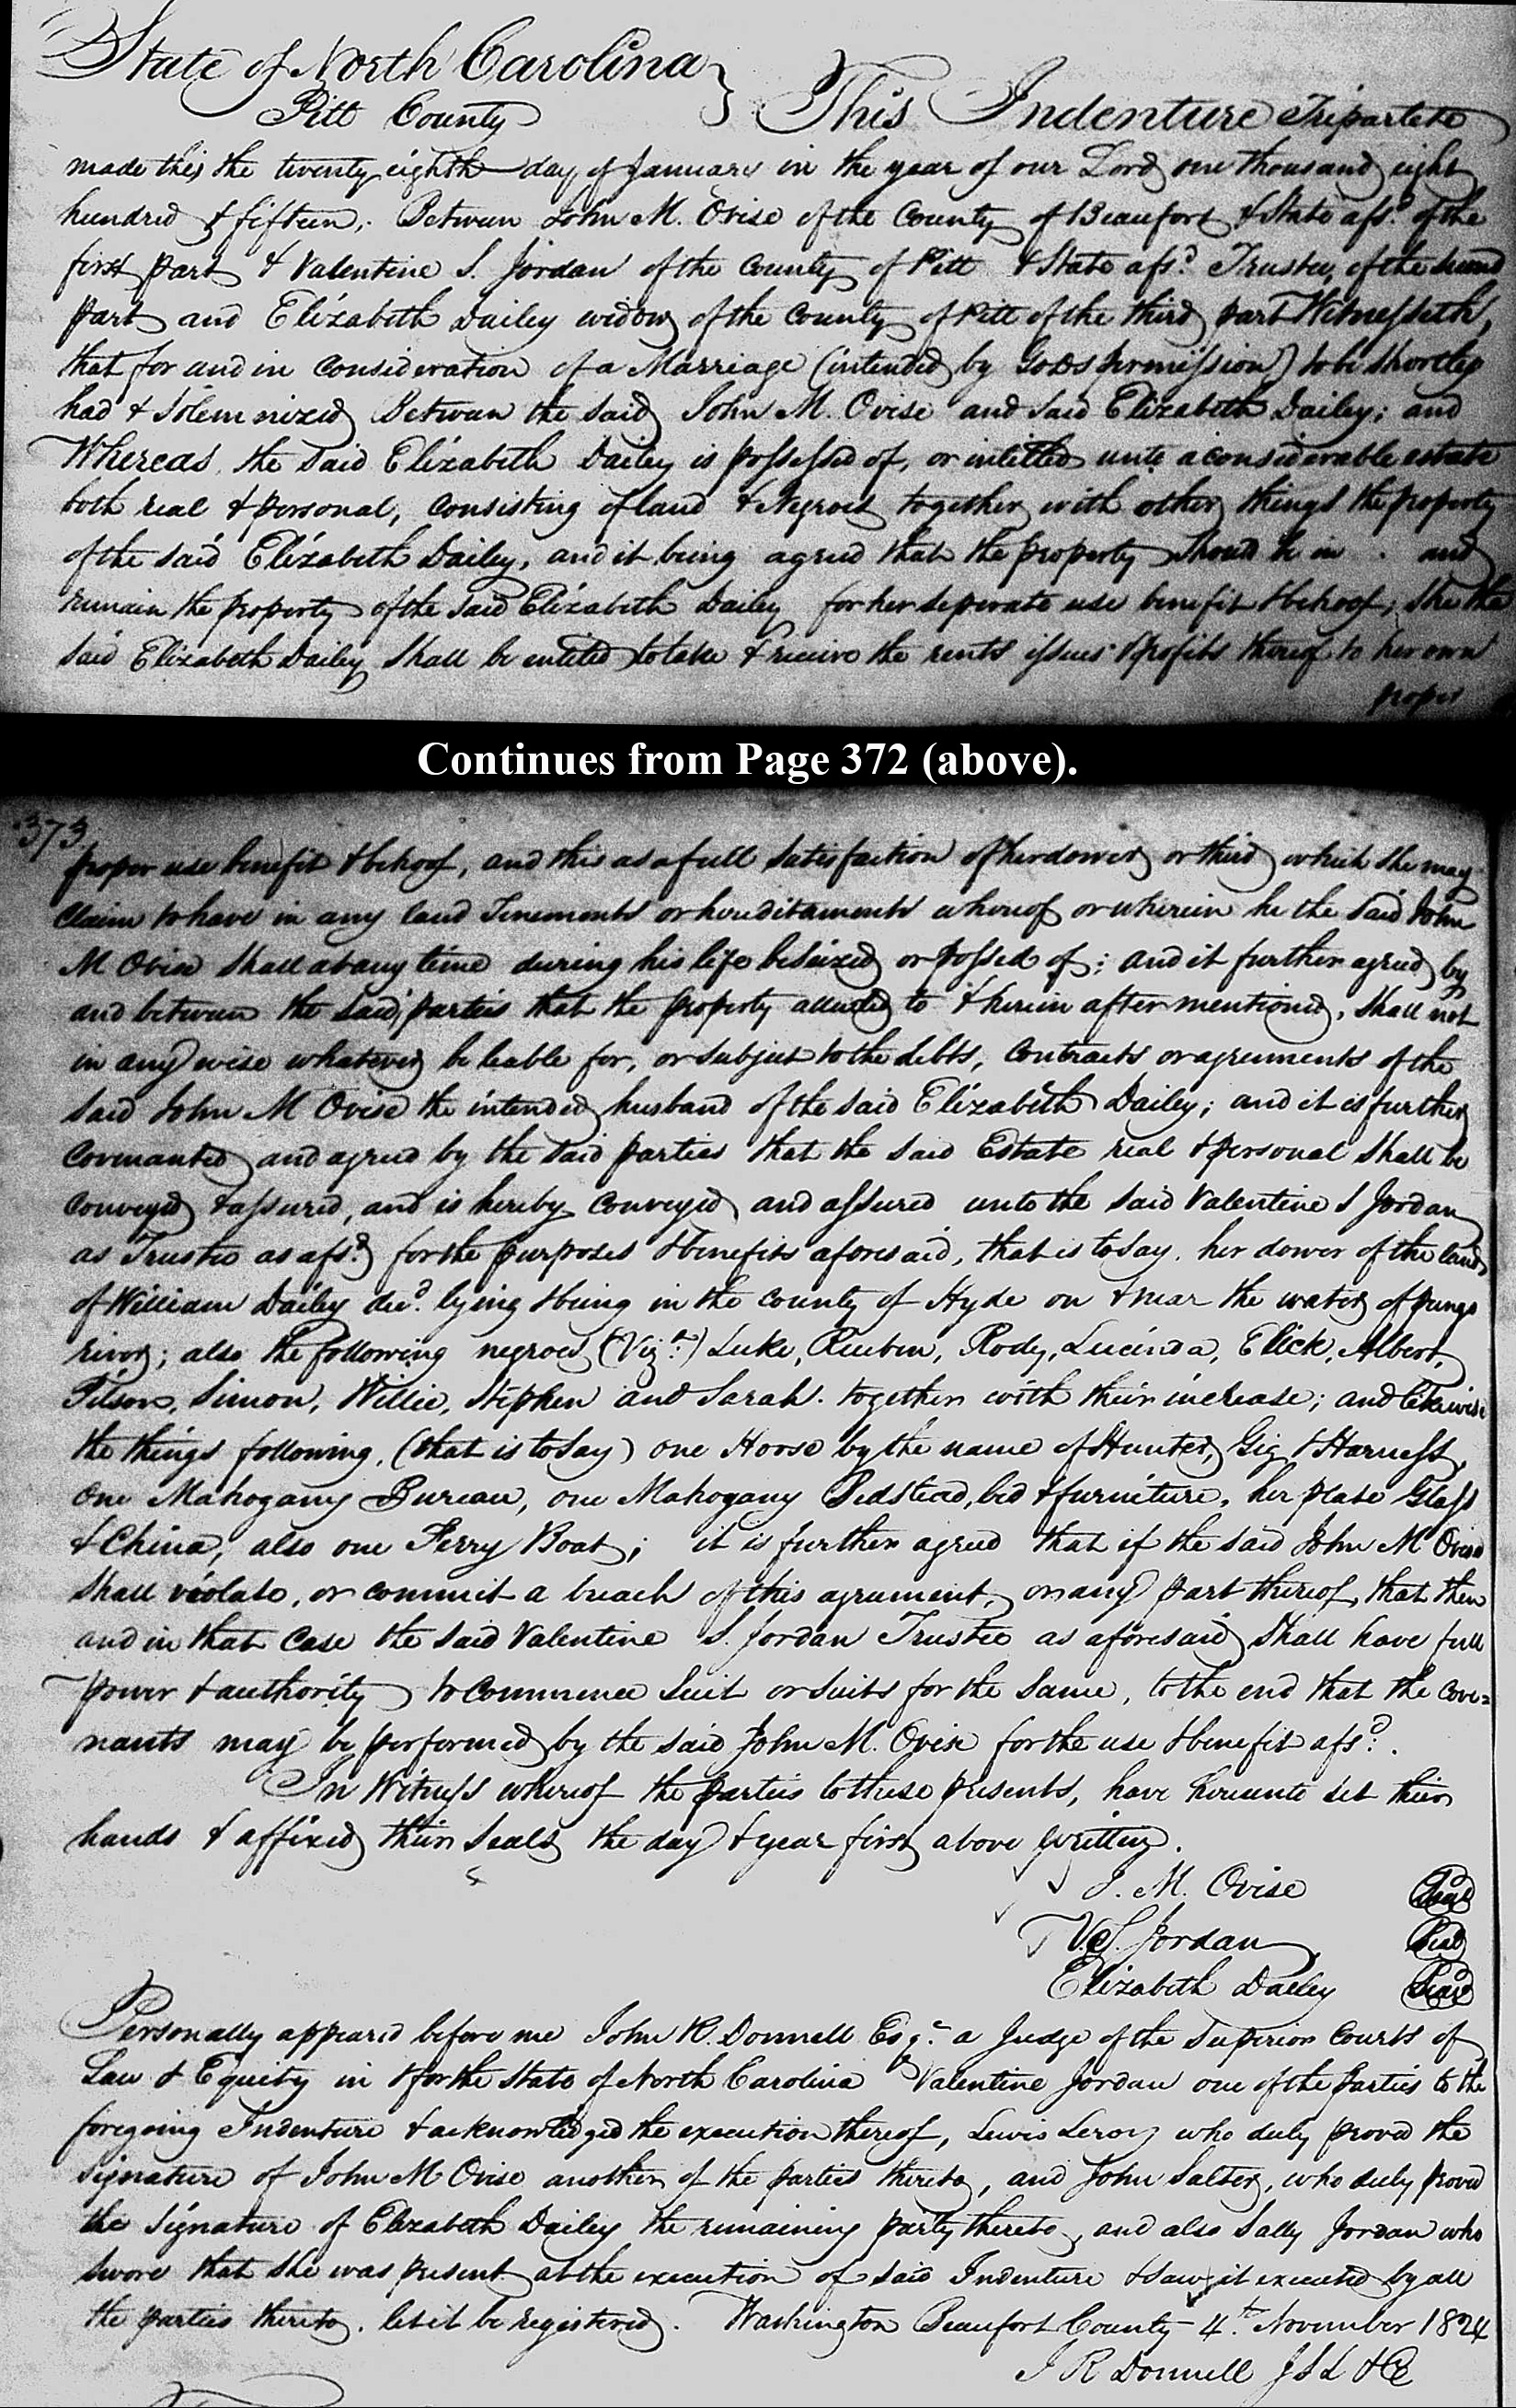 State of North Carolina }
Pitt County This Indenture Tripartite
made this the twenty eighth day of January in the year of our Lord one thousand eight
hundred & fifteen; Between John M. Ovise of the County of Beaufort & State afsd. of the
first part & Valentine S. Jordan of the County of Pitt & State afsd. Trustee of the second
part and Elizabeth Dailey widow of the County of Pitt of the third part Witnesseth,
that for and in consideration of a Marriage (intended by Gods permission) to be shortley
had & Solemnized Between the said John M. Ovise and said Elizabeth Dailey; and
Whereas the said Elizabeth Dailey is possessed of, or intitled unto a considerable estate
both real & personal, consisting of land & Negroes together with other things the property
of the said Elizabeth Dailey, and it being agreed that the property should be in and
remain the property of the said Elizabeth Dailey for her seperate use benefit & behoof; she the
said Elizabeth Dailey shall be entitled to take & receive the rents issues & profits thereof to her own
proper
Continues from Page 372 (above).
373
proper use benefit & behoof, and this as a full satisfaction of her dower or third which she may
claim to have in any land Tenements or hereditaments whereof or wherein he the said John
M Ovise shall at any time during his life be seized or possed of; and it further agreed by
and between the said parties that the property alluded to & herein after mentioned, shall not
in any wise whatever be leable for, or subject to the debts, contracts or agreements of the
said John M Ovise the intended husband of the said Elizabeth Dailey; and it is further
covenanted and agreed by the said parties that the said Estate real & personal shall be
conveyed & assured, and is hereby conveyed and assured unto the said Valentine S Jordan
as Trustee as afsd. for the purposes & benefits aforesaid, that is to say. her dower of the lands
of William Dailey decd. lying & being in the county of Hyde on & near the water of pungo
river; also the following negroes (Vizt.) Luke, Reuben, Rody, Lucinda, Elick, Albert,
Pilson, Simon, Willie, Stephen and Sarah. together with their increase; and likewise
the things following, (that is to say) one Horse by the name of Hunter, Gig & Harness,
one Mahogany Bureau, one Mahogany Bedstead, bed & furniture, her plate Glass
& China, also one Ferry Boat; it is further agreed that if the said John M Ovise
shall violate, or commit a breach of this agreement, or any part thereof, that then
and in that case the said Valentine S. Jordan Trustee as aforesaid shall have full
power & authority to commence suit or suits for the same, to the end that the cove=
nants may be performed by the said John M. Ovise for the use & benefit afsd.
In Witness whereof the parties to these presents, have hereunto set their
hands & affixed their seals the day & year first above written.
J. M. Ovise Seal
V. S. Jordan Seal
Elizabeth Dailey Seal
Personally appeared before me John R. Donnell Esqr. a Judge of the Superior Courts of
Law & Equity in & for the State of North Carolina Valentine Jordan one of the parties to the
foregoing Indenture & acknowledged the execution thereof, Lewis Leroy who duly proved the
signature of John M Ovise another of the parties thereto, and John Salter, who duly proved
the signature of Elizabeth Dailey the remaining party thereto, and also Sally Jordan who
swore that she was present at the execution of said Indenture & saw it executed by all
the parties thereto. let it be registered. Washington Beaufort County 4th. November 1824
J R Donnell J S L & E